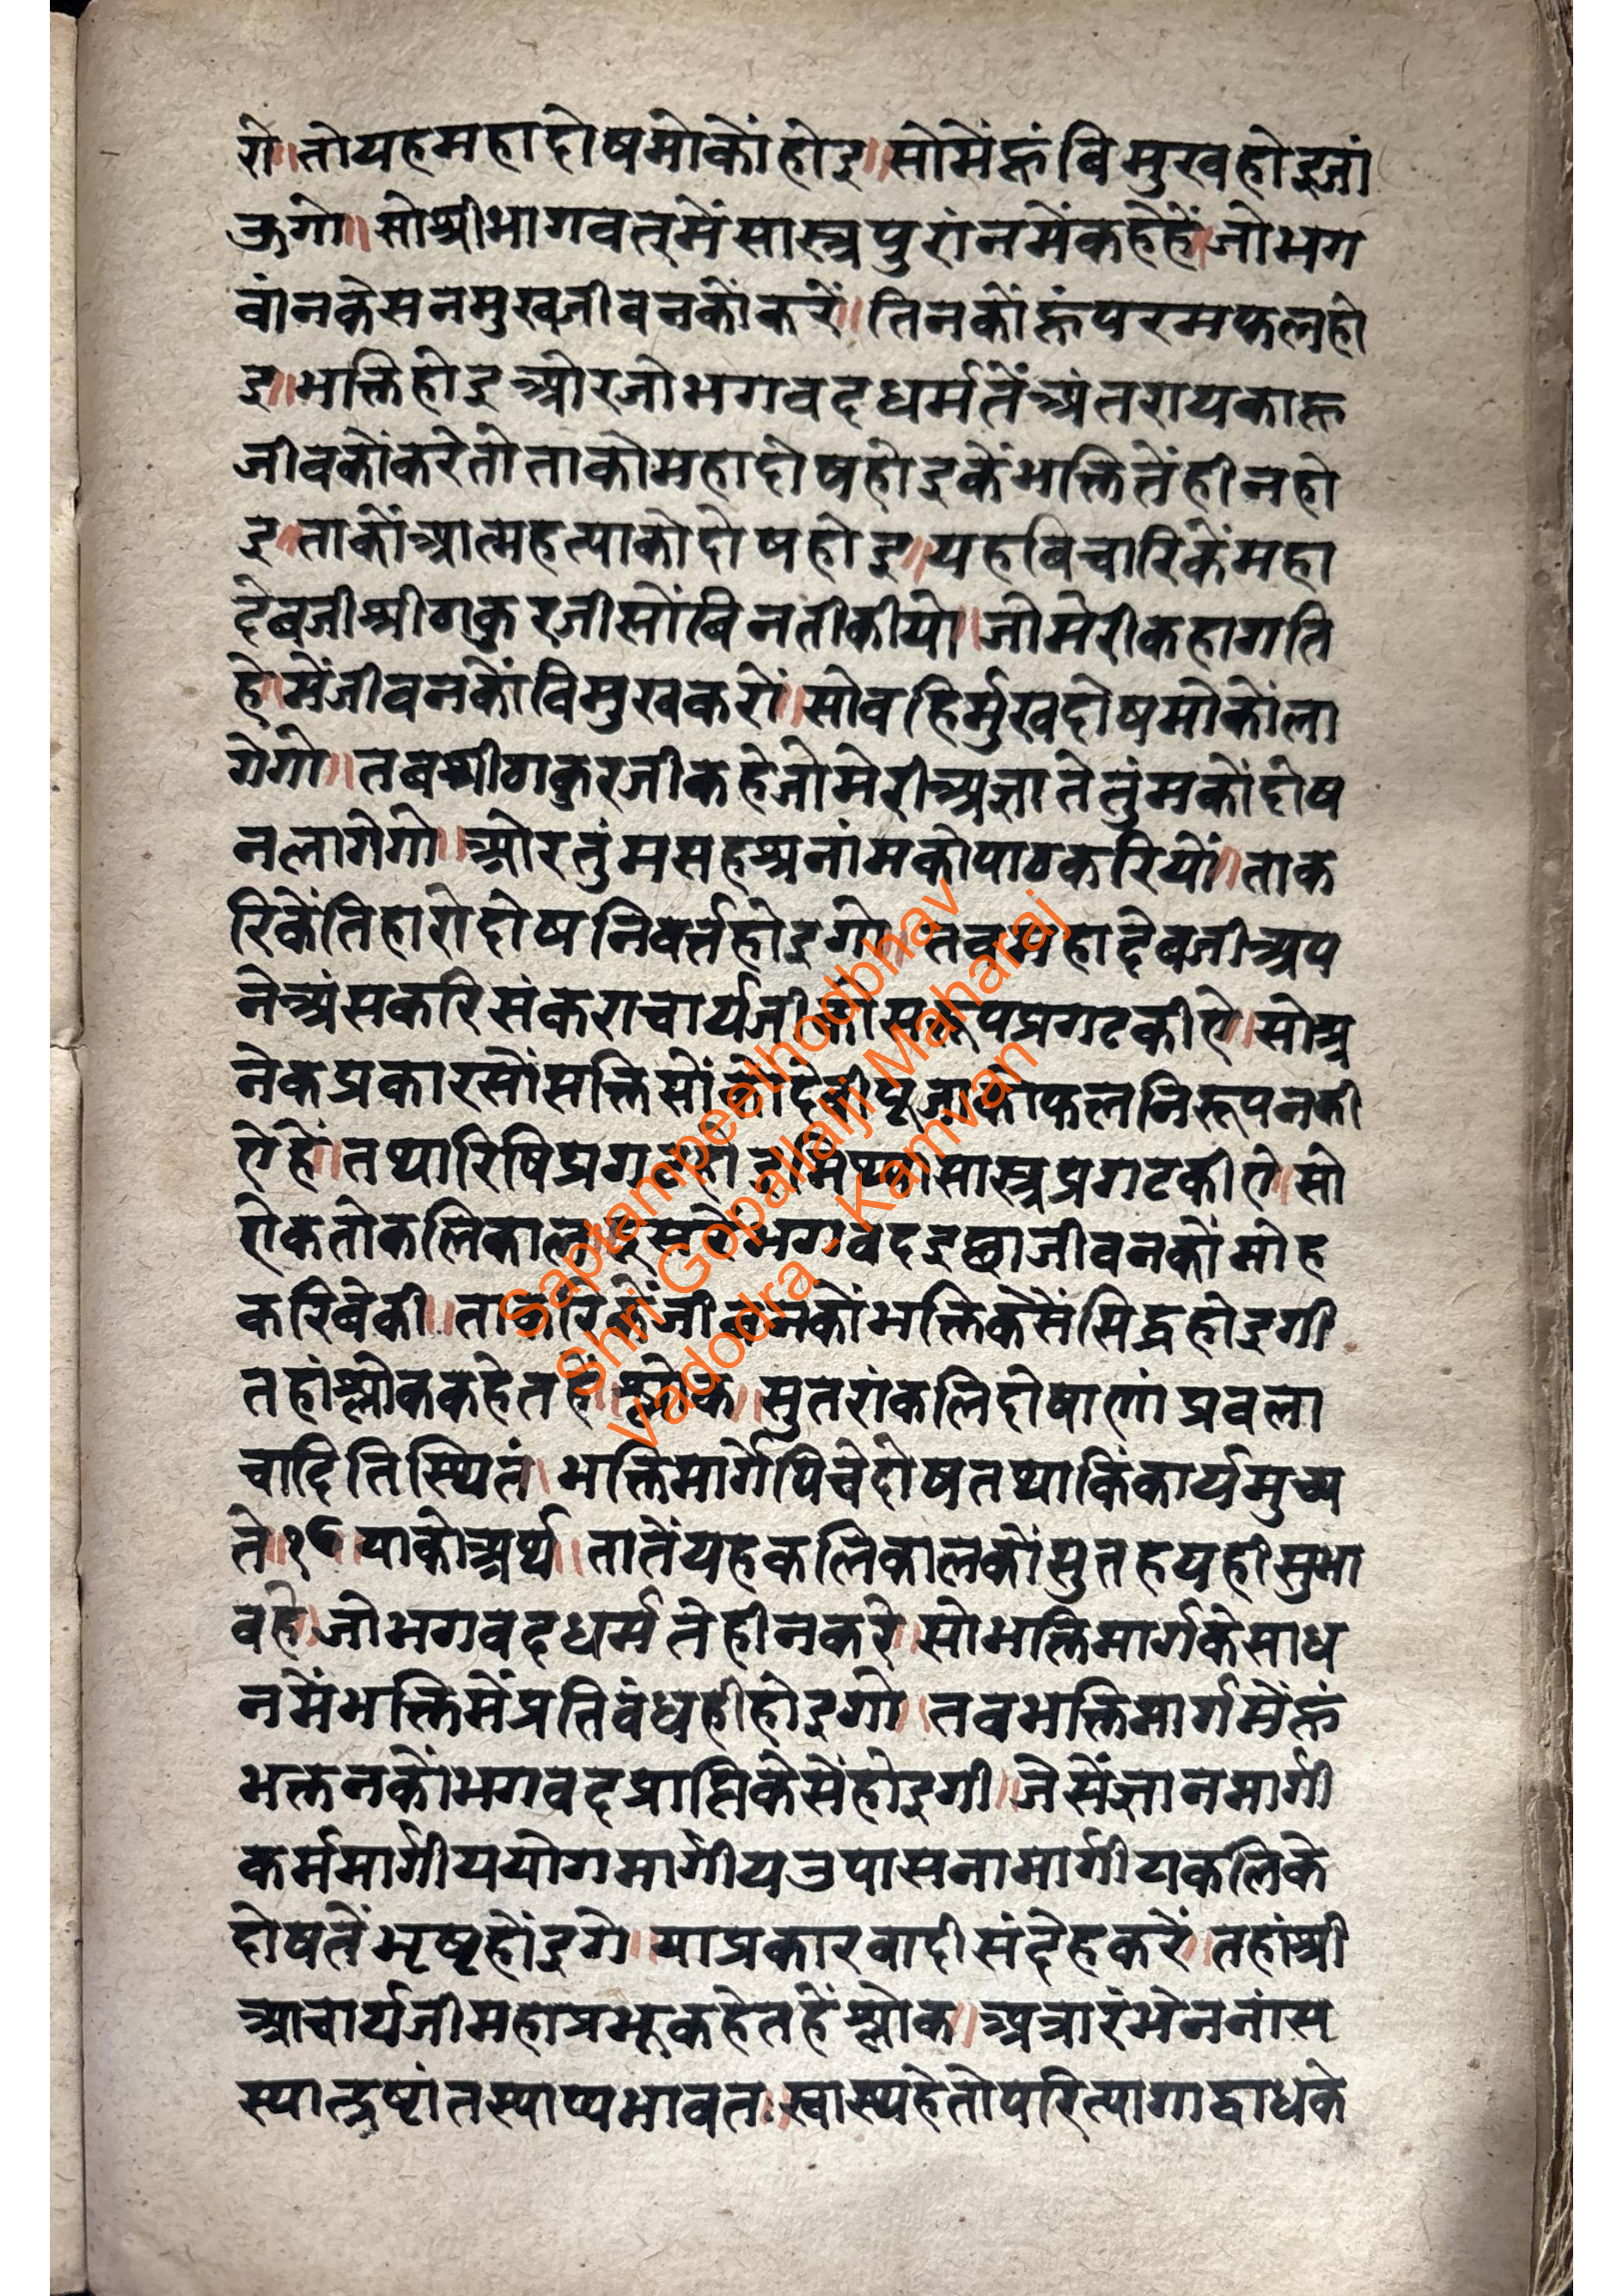 रो॥तोयहमहादोषमोकोंहोइ॥सोमेंहूंविमुखहोइजां
ऊगो॥सोश्रीभागवतमेंसास्त्रपुरांनमेंकहेहें॥जोभग
वांनकेसनमुखजीवनकोंकरें॥तिनकोंहूंपरमफलहो
इ॥भक्तिहोइओरजोभगवदधर्मतेंअंतरायकाहू
जीवकोंकरेतोताकोमहादोषहोइकेंभक्तितेंहीनहो
इ॥ताकोंआत्महत्याकोदोषहोइ॥यहविचारिकेंमहा
देवजीश्रीठाकुरजीसोंबिनतीकीयो॥जोमेरीकहागति
हे॥मेंजीवनकोंविमुखकरों॥सोवहिर्मुखदोषमोकोंला
गेगो॥तबश्रीठाकुरजीकहेजोमेरीअज्ञातेतुंमकोंदोष
नलागेगो॥ओरतुंमसहश्रनांमकोपाठकरियों॥ताक
रिकेंतिहारोदोषनिवर्तहोइगो॥तबमहादेवजीअप
नेअंसकरिसंकराचार्यजीकोसरूपप्रगटकीऐ॥सोअ
नेकप्रकारसोंसक्तिसोंकोंदेवीपूजाकोफलनिरूपनकी
ऐहें॥तथारिषिप्रगटहोइमिथ्यासास्त्रप्रगटकीऐ॥सो
ऐकतोकलिकाल॥दुसरेभगवदइछाजीवनकोंमोह
करिवेकी॥ताकरिकेंजीवनकोंभक्तिकेसेंसिद्धहोइगी
तहांश्लोककहेतहें॥श्लोक॥सुतरांकलिदोषाणांप्रवला
चादितिस्थितं॥भक्तिमार्गेपिचेदोषतथाकिंकार्यमुच्य
ते॥१६॥याकोअर्थ॥तातेंयहकलिकालकोंसुतहयहीसुभा
वहे॥जोभगवदधर्मतेहीनकरे॥सोभक्तिमार्गकेसाध
नमेंभक्तिमेंप्रतिवंधहीहोइगो॥तवभक्तिमार्गमेंहूं
भक्तनकोंभगवदप्राप्तिकेसेंहोइगी॥जेसेंज्ञानमार्गी
कर्ममार्गीययोगमार्गीयउपासनामार्गीयकलिके
दोषतेंभृष्टहोंइगे॥याप्रकारवादीसंदेहकरें॥तहांश्री
आचार्यजीमहाप्रभूकहेतहेंश्लोक॥अत्रारंभेननांस
स्यात्द्रष्टांतस्याप्यभावतः॥स्वास्थ्यहेतोपरित्यागाद्वाधके
Saptampeethodbhav
Shri Gopallalji Maharaj
Vadodra Kamvan